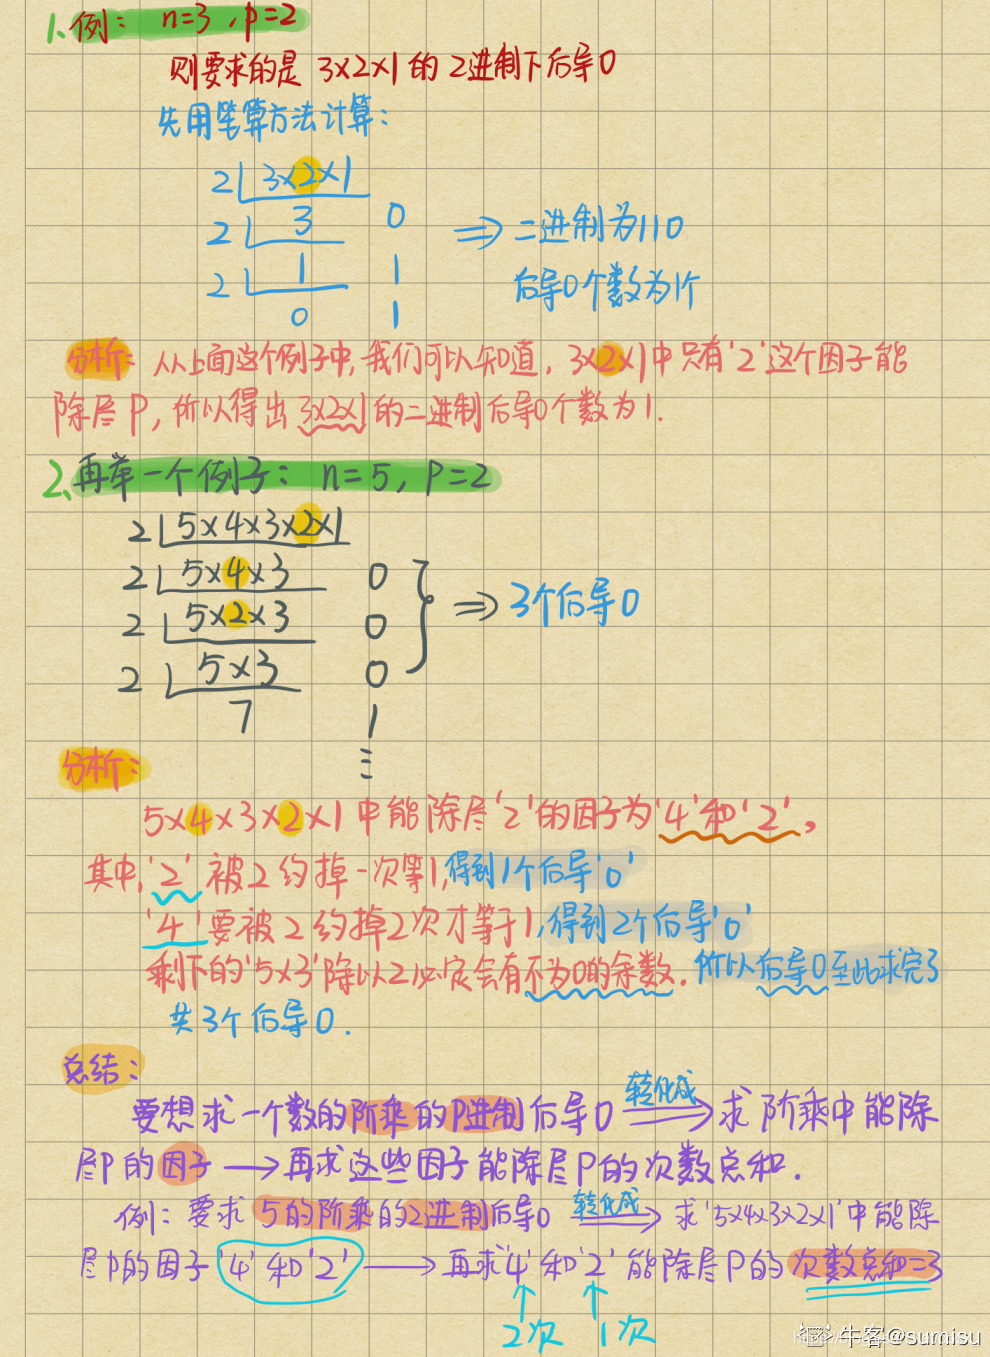 1、例： n=3 , p=2
则要求的是 3×2×1 的 2进制下后导0
先用笔算方法计算：
2 3×2×1
2 3 0
2 1 1
0 1
⇒ 二进制为110
后导0个数为1个
分析： 从上面这个例子中,我们可以知道, 3×2×1中只有'2'这个因子能
除尽P, 所以得出 3×2×1的二进制后导0个数为1.
2、再举一个例子： n=5, P=2
2 5×4×3×2×1
2 5×4×3 0
2 5×2×3 0
2 5×3 0
7 1
⇒ 3个后导0
分析：
5×4×3×2×1 中能除尽'2'的因子为'4'和'2',
其中,'2' 被2约掉一次等1,得到1个后导'0'
'4'要被2约掉2次才等于1,得到2个后导'0'
剩下的'5×3'除以2必定会有不为0的余数. 所以后导0至此求完了
共3个后导0.
总结：
要想求一个数的阶乘的P进制后导0 转化成 ⇒ 求阶乘中能除
尽P的因子 → 再求这些因子能除尽P的次数总和.
例：要求 5的阶乘的2进制后导0 转化成 ⇒ 求'5×4×3×2×1'中能除
尽P的因子'4'和'2' → 再求'4'和'2'能除尽P的次数总和=3
2次 1次
牛客@sumisu